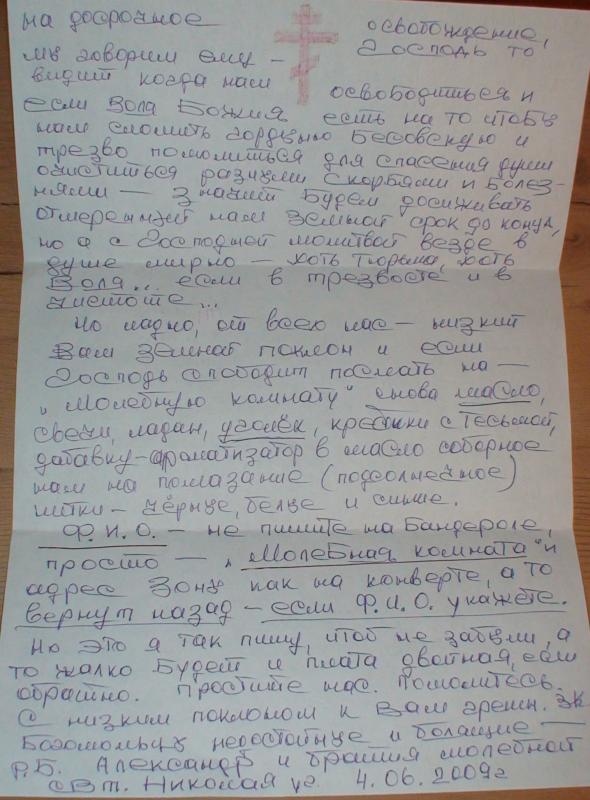 на досрочное освобождение,
мы говорим ему – Господь то
видит когда нам освободиться и
если Воля Божия есть на то чтобы
нам сломить гордыню Бесовскую и
трезво помолиться для спасения души
очиститься разными Скорбями и Болез-
нями — значит Будем досиживать
отмеренный нам Земной срок до конца,
но а с Господней молитвой везде в
душе мирно – хоть тюрьма, хоть
Воля... если в трезвости и в
чистоте...
Но ладно, от всех нас – низкий
Вам Земной поклон и если
Господь сподобит послать на —
„Молебную комнату" снова масло,
свечи, ладан, уголёк, крестики с тесьмой,
дабавку-ароматизатор в масло соборное
нам на помазание (подсолнечное)
нитки – чёрные, белые и синие.
Ф.И.О. – не пишите на Бандероле,
просто — „Молебная комната" и
адрес Зоны как на конверте, а то
вернут назад – если Ф.И.О. укажете.
Но это я так пишу, чтоб не забыли, а
то жалко Будет и плата двойная, если
обратно. Простите нас. Помолитесь.
С низким поклоном к Вам грешн. ЗК
Богомольцы недостойные и болящие —
Р.Б. Александр и братия молебной
СВт. Николая уг. 4.06.2009г